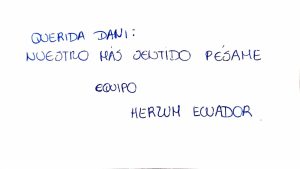 QUERIDA DANI:
NUESTRO MÁS SENTIDO PÉSAME
EQUIPO
HERZUM ECUADOR